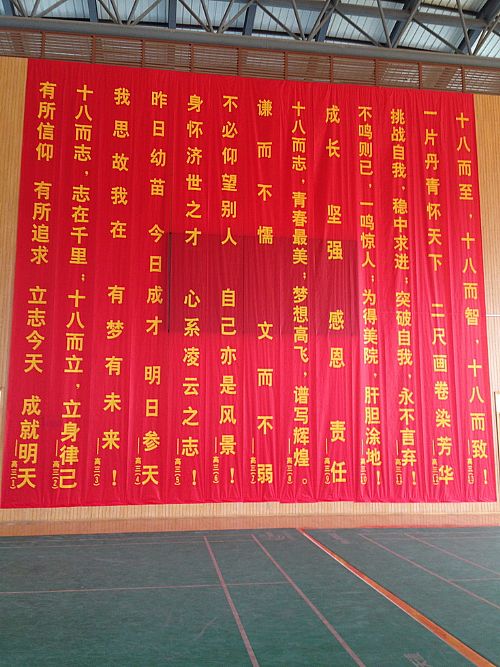 有所信仰 有所追求 立志今天 成就明天
——高三(1)
十八而志，志在千里；十八而立，立身律己
——高三(2)
我思故我在 有梦有未来！
——高三(3)
昨日幼苗 今日成才 明日参天
——高三(4)
身怀济世之才 心系凌云之志！
——高三(5)
不必仰望别人 自己亦是风景！
——高三(6)
谦而不懦 文而不弱
——高三(7)
十八而志，青春最美；梦想高飞，谱写辉煌。
——高三(8)
成长 坚强 感恩 责任
——高三(9)
不鸣则已，一鸣惊人；为得美院，肝胆涂地！
——高三
挑战自我，稳中求进；突破自我，永不言弃！
——高三
一片丹青怀天下 二尺画卷染芳华
——高三
十八而至，十八而智，十八而致！
——高三